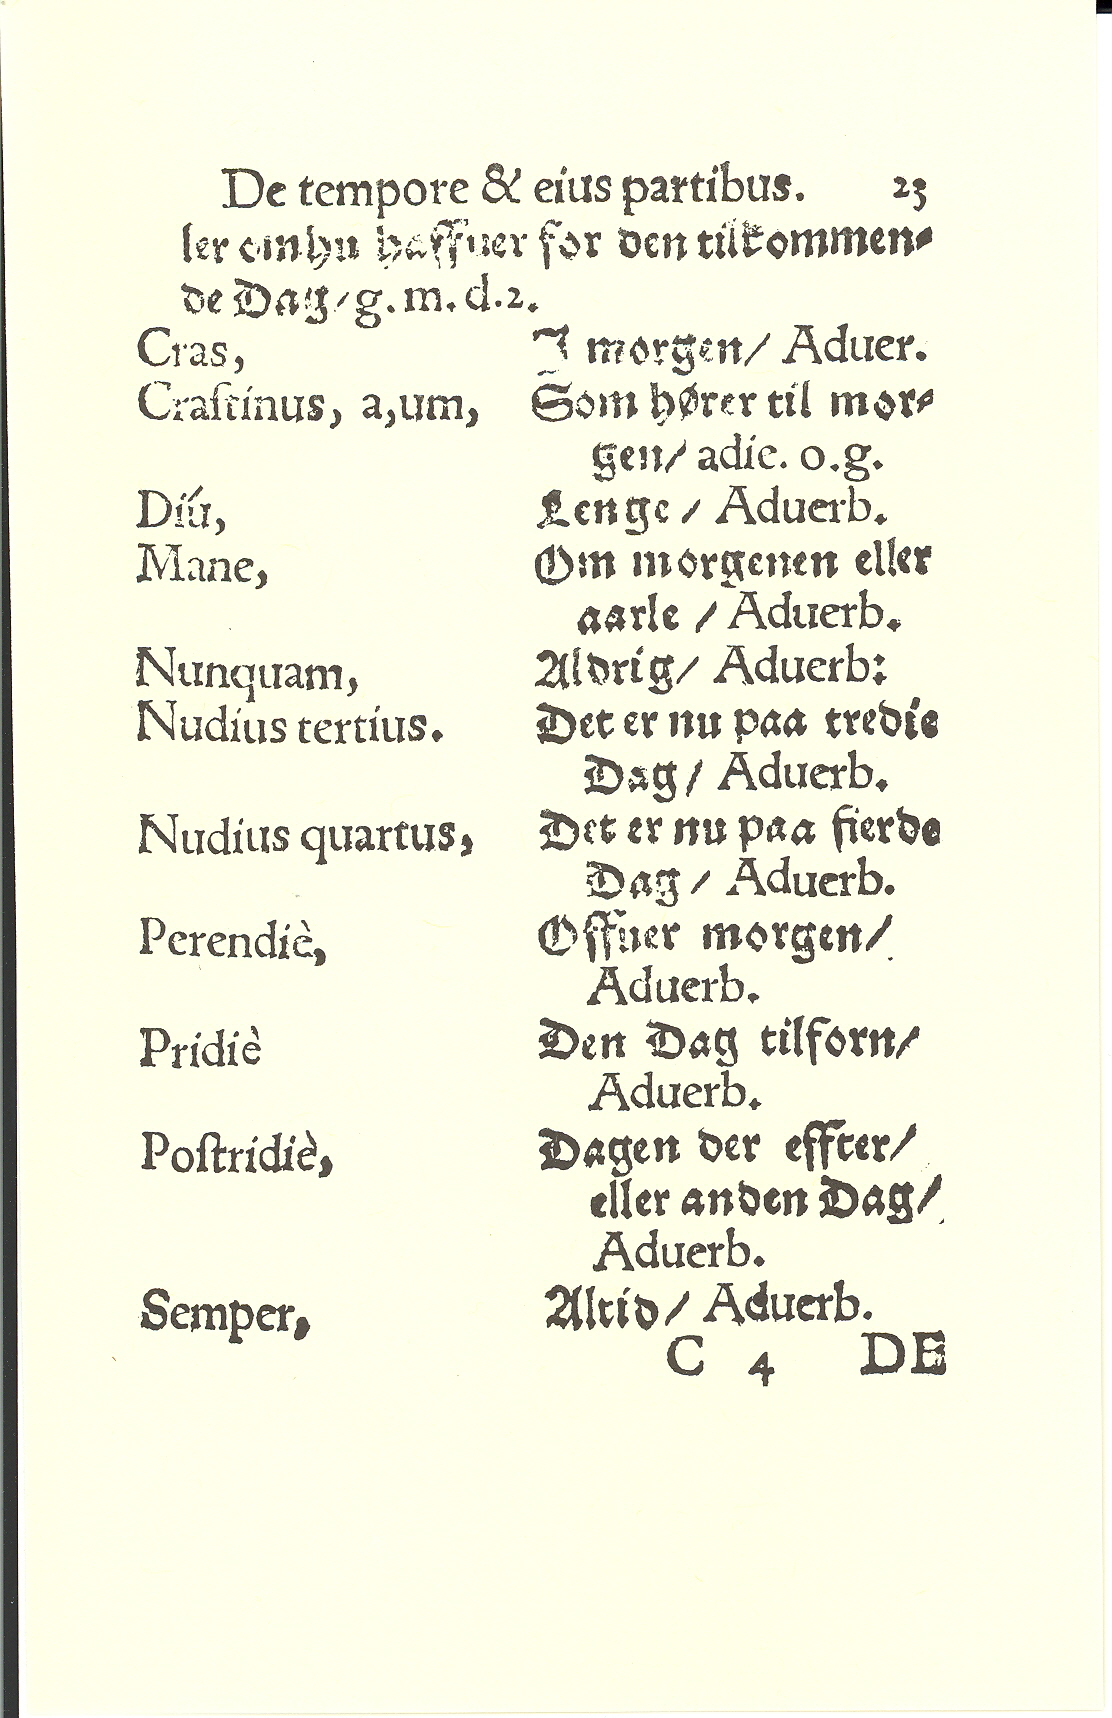 De tempore & eius partibus. 23
ler omhu haffuer for den tilkommen⸗
de Dag/g.m.d.2.
Cras, I morgen/ Aduer.
Craſtinus, a,um, Som hører til mor⸗
gen/ adie. o.g.
Diú, Lenge / Aduerb.
Mane, Om morgenen eller
aarle / Aduerb.
Nunquam, Aldrig/ Aduerb:
Nudius tertius. Det er nu paa tredie
Dag/ Aduerb.
Nudius quartus, Det er nu paa fierde
Dag / Aduerb.
Perendiè, Offuer morgen/
Aduerb.
Pridiè Den Dag tilforn/
Aduerb.
Poſtridiè, Dagen der effter/
eller anden Dag/
Aduerb.
Semper, Altid/ Aduerb.
C 4 DE